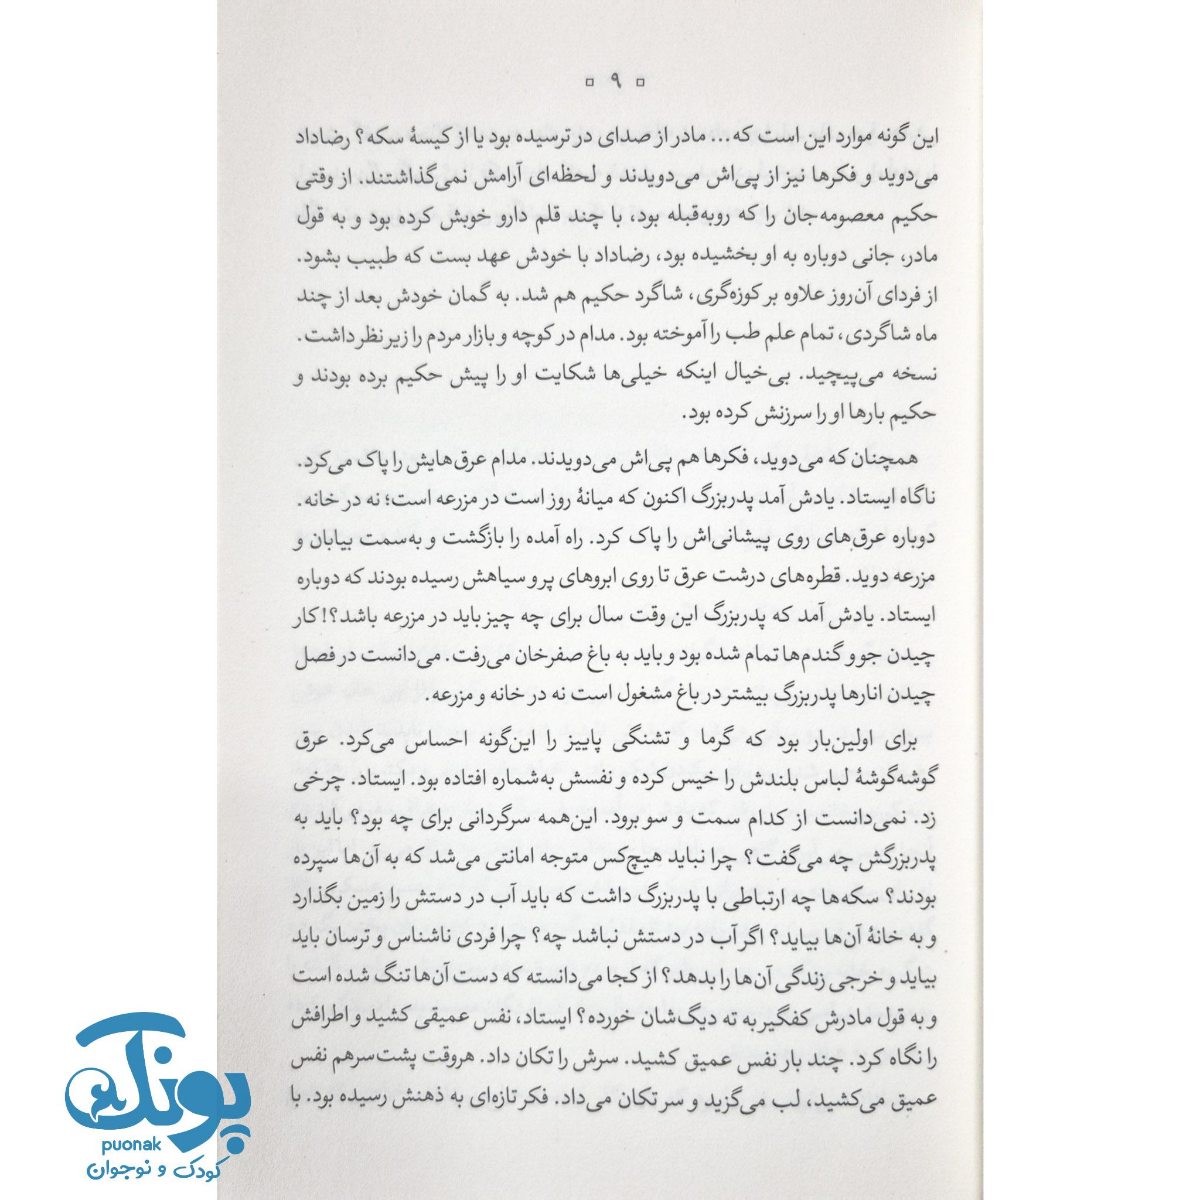 ▫ ۹ ▫
این گونه موارد این است که... مادر از صدای در ترسیده بود یا از کیسهٔ سکه؟ رضاداد
می‌دوید و فکرها نیز از پی‌اش می‌دویدند و لحظه‌ای آرامش نمی‌گذاشتند. از وقتی
حکیم معصومه‌جان را که روبه‌قبله بود، با چند قلم دارو خوبش کرده بود و به قول
مادر، جانی دوباره به او بخشیده بود، رضاداد با خودش عهد بست که طبیب بشود.
از فردای آن‌روز علاوه بر کوزه‌گری، شاگرد حکیم هم شد. به گمان خودش بعد از چند
ماه شاگردی، تمام علم طب را آموخته بود. مدام در کوچه و بازار مردم را زیر نظر داشت.
نسخه می‌پیچید. بی‌خیال اینکه خیلی‌ها شکایت او را پیش حکیم برده بودند و
حکیم بارها او را سرزنش کرده بود.
همچنان که می‌دوید، فکرها هم پی‌اش می‌دویدند. مدام عرق‌هایش را پاک می‌کرد.
ناگاه ایستاد. یادش آمد پدربزرگ اکنون که میانهٔ روز است در مزرعه است؛ نه در خانه.
دوباره عرق‌های روی پیشانی‌اش را پاک کرد. راه آمده را بازگشت و به‌سمت بیابان و
مزرعه دوید. قطره‌های درشت عرق تا روی ابروهای پر و سیاهش رسیده بودند که دوباره
ایستاد. یادش آمد که پدربزرگ این وقت سال برای چه چیز باید در مزرعه باشد؟! کار
چیدن جو و گندم‌ها تمام شده بود و باید به باغ صفرخان می‌رفت. می‌دانست در فصل
چیدن انارها پدربزرگ بیشتر در باغ مشغول است نه در خانه و مزرعه.
برای اولین‌بار بود که گرما و تشنگی پاییز را این‌گونه احساس می‌کرد. عرق
گوشه‌گوشهٔ لباس بلندش را خیس کرده و نفسش به‌شماره افتاده بود. ایستاد. چرخی
زد. نمی‌دانست از کدام سمت و سو برود. این‌همه سرگردانی برای چه بود؟ باید به
پدربزرگش چه می‌گفت؟ چرا نباید هیچ‌کس متوجه امانتی می‌شد که به آن‌ها سپرده
بودند؟ سکه‌ها چه ارتباطی با پدربزرگ داشت که باید آب در دستش را زمین بگذارد
و به خانهٔ آن‌ها بیاید؟ اگر آب در دستش نباشد چه؟ چرا فردی ناشناس و ترسان باید
بیاید و خرجی زندگی آن‌ها را بدهد؟ از کجا می‌دانسته که دست آن‌ها تنگ شده است
و به قول مادرش کفگیر به ته دیگ‌شان خورده؟ ایستاد، نفس عمیقی کشید و اطرافش
را نگاه کرد. چند بار نفس عمیق کشید. سرش را تکان داد. هروقت پشت‌سرهم نفس
عمیق می‌کشید، لب می‌گزید و سر تکان می‌داد. فکر تازه‌ای به ذهنش رسیده بود. با
پونک
puonak
کودک و نوجوان